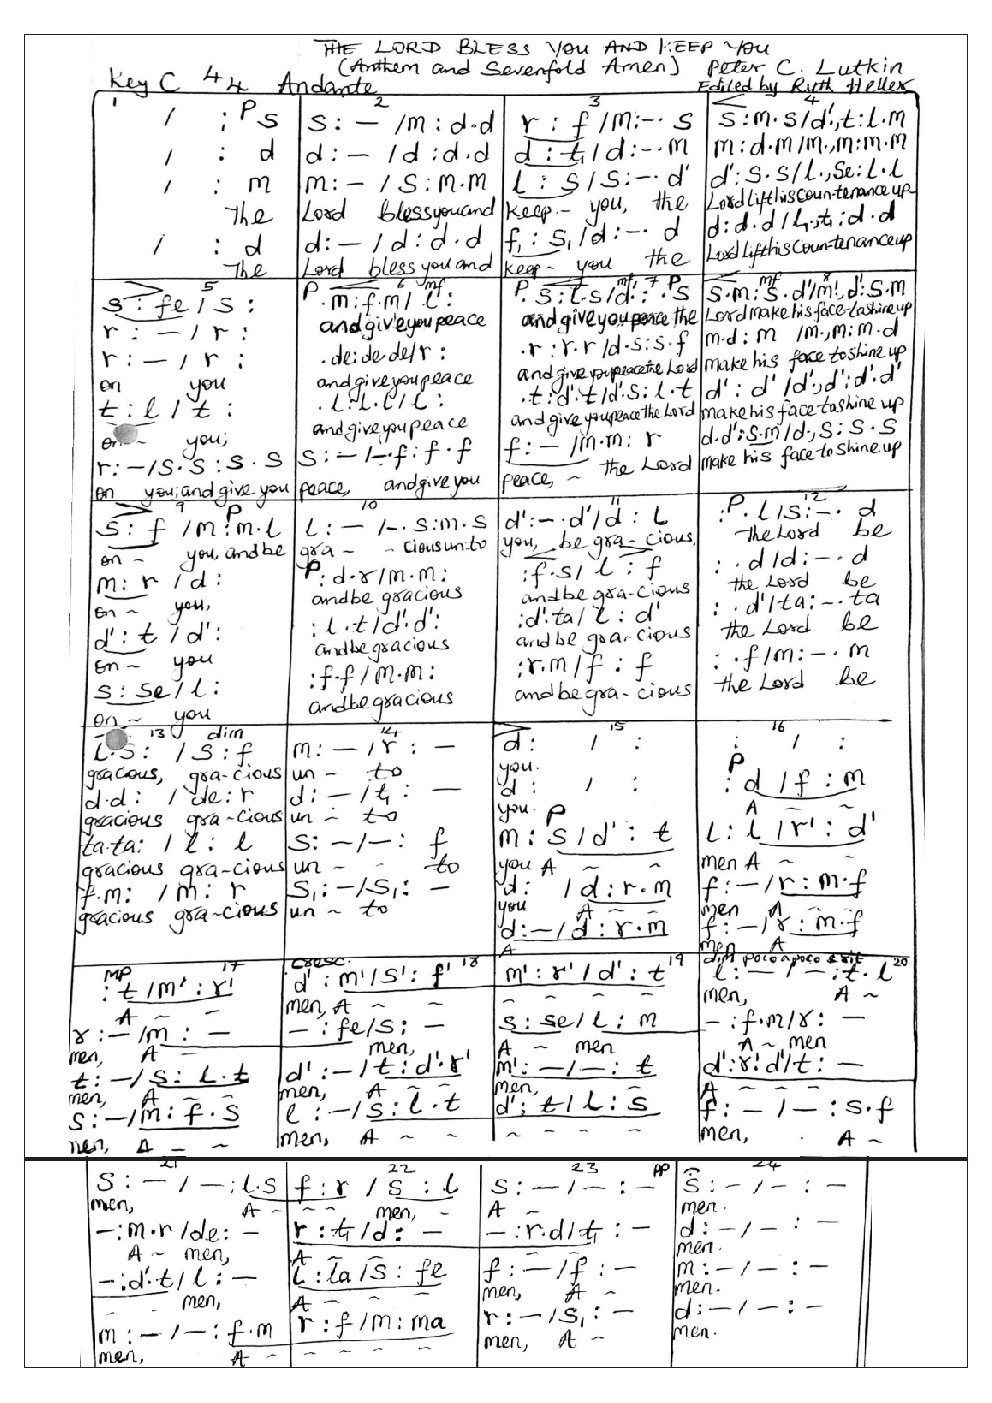 THE LORD BLESS YOU AND KEEP YOU
(Anthem and Sevenfold Amen) Peter C. Lutkin
Key C 4 4 Andante Edited by Ruth Heller
1 2 3 4
/ : P s s : – / m : d . d r : f / m : – . s s : m . s / d' , t : l . m
/ : d d : – / d : d . d d : t₁ / d : – . m m : d . m / m . , m : m . m
/ : m m : – / s : m . m l : s / s : – . d' d' : s . s / l . , se : l . l
The Lord bless you and keep – you, the Lord lift his coun-tenance up-
/ : d d : – / d : d . d f₁ : s₁ / d : – . d d : d . d / l₁ , t₁ : d . d
The Lord bless you and keep ~ you the Lord lift his coun-tenance up
5 6 mf 7 P mf 8
s : fe / s : P . m : f . m / l : P . s : l . s / d' . : . s s . m : s . d' / m' . d' : s . m
r : – / r : and give you peace and give you peace the Lord make his face to shine up
r : – / r : . de : de . de / r : . r : r . r / d . s : s . f m . d : m / m . , m : m . d
on you and give you peace and give you peace the Lord make his face to shine up
t : l / t : . l : l . l / l : . t : d' . t / d' . s : l . t d' : d' / d' . , d' : d' . d'
on ~ you; and give you peace and give you peace the Lord make his face to shine up
r : – / s . s : s . s s : – / – . f : f . f f : – / m . m : r d . d' : s . m / d . , s : s . s
on you; and give you peace, and give you peace, ~ the Lord make his face to shine up
9 10 11 12
s : f / m : P m . l l : – / – . s : m . s d' : – . d' / d : l : P . l / s : – . d
on ~ you, and be gra ~ ~ cious un-to you, be gra – cious, the Lord be
m : r / d : P : d . r / m . m : : f . s / l : f : . d / d : – . d
on ~ you, and be gracious and be gra-cious the Lord be
d' : t / d' : : l . t / d' . d' : : d' . ta / l : d' : . d' / ta : – . ta
on ~ you and be gracious and be gra-cious the Lord be
s : se / l : : f . f / m . m : : r . m / f : f : . f / m : – . m
on ~ you and be gracious and be gra-cious the Lord be
13 dim 14 15 16
l . s : / s : f m : – / r : – d : / : : / :
gracious, gra-cious un ~ to you.
d . d : / de : r d : – / t₁ : – d : / : P : d / f : m
gracious gra-cious un ~ to you. A ~ ~
ta . ta : / l : l s : – / – : f m : P s / d' : t l : l / r' : d'
gracious gra-cious un ~ to you A ~ ~ men A ~ ~
f . m : / m : r s₁ : – / s₁ : – d : / d : r . m f : – / r : m . f
gracious gra-cious un ~ to you A ~ ~ men A ~ ~
d : – / d : r . m f : – / r : m . f
A men A
mp 17 cresc. 18 19 dim poco a poco e rit 20
: t / m' : r' d' : m' / s' : f' m' : r' / d' : t l : – – : t . l
A ~ ~ men, A ~ ~ ~ ~ ~ ~ men, A ~
r : – / m : – – : fe / s : – s : se / l : m – : f . m / r : –
men, A ~ men, A ~ men A ~ men
t : – / s : l . t d' : – / t : d' . r' m' : – / – : t d' : r' . d' / t : –
men, A ~ ~ men, A ~ ~ men, A ~ ~ ~
s : – / m : f . s l : – / s : l . t d' : t / l : s f : – / – : s . f
men, A – ~ men, A ~ ~ ~ ~ ~ ~ men, A ~
21 22 23 pp 24
s : – / – : l . s f : r / s : l s : – / – : – s : – / – : –
men, A ~ ~ ~ men, ~ A ~ men.
– : m . r / de : – r : t₁ / d : – – : r . d / t₁ : – d : – / – : –
A ~ men, A ~ ~ men.
– : d' . t / l : – l : la / s : fe f : – / f : – m : – / – : –
~ ~ men, A ~ ~ ~ men, A ~ men.
m : – / – : f . m r : f / m : ma r : – / s₁ : – d : – / – : –
men, A ~ ~ ~ ~ ~ men, A ~ men.